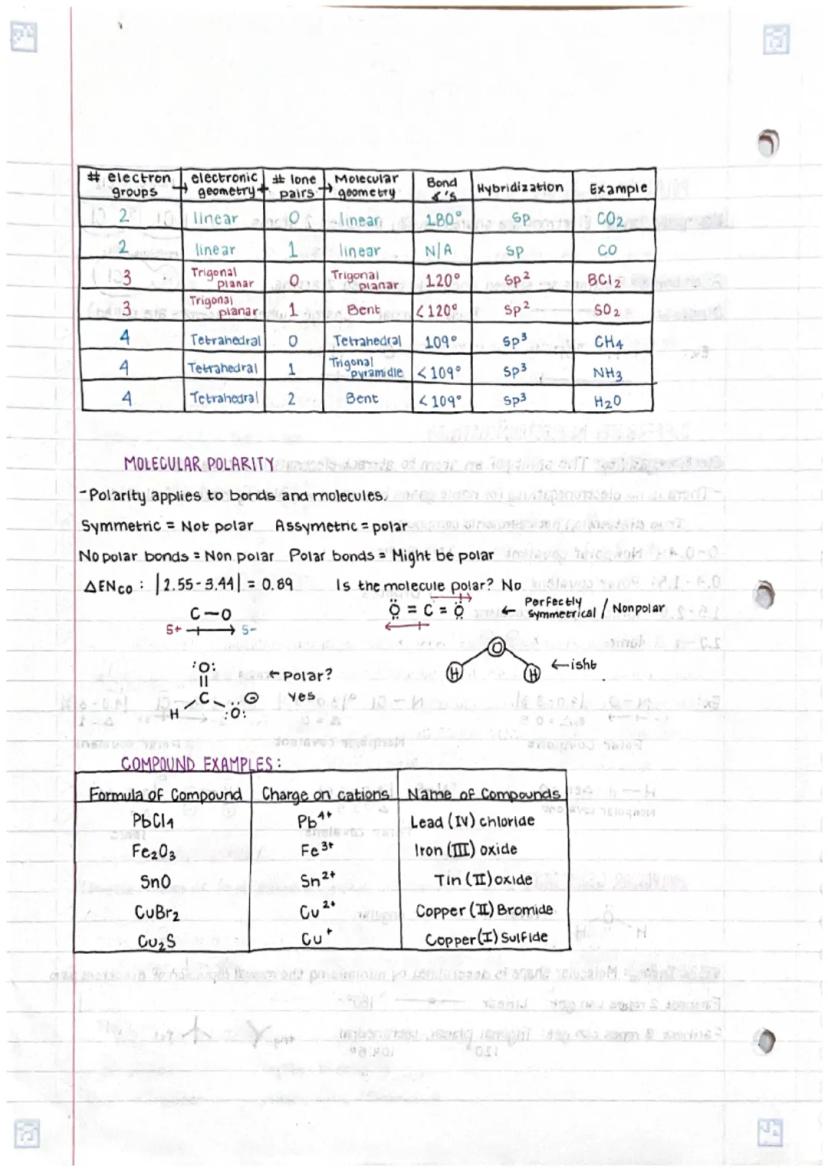 # electron groups → electronic geometry + # lone pairs → Molecular geometry Bond ∡'s Hybridization Example
2 linear 0 linear 180° sp CO₂
2 linear 1 linear N/A sp CO
3 Trigonal planar 0 Trigonal planar 120° Sp² BCl₂
3 Trigonal planar 1 Bent <120° Sp² SO₂
4 Tetrahedral 0 Tetrahedral 109° Sp³ CH₄
4 Tetrahedral 1 Trigonal pyramidle <109° Sp³ NH₃
4 Tetrahedral 2 Bent <109° Sp³ H₂O
MOLECULAR POLARITY
-Polarity applies to bonds and molecules.
Symmetric = Not polar Assymetric = polar
No polar bonds = Non polar Polar bonds = Might be polar
ΔENco : |2.55-3.44| = 0.89 Is the molecule polar? No
C-O
δ+ δ-
Ö = C = Ö ← Perfectly symmetrical / Nonpolar
O
H H ← isht
:O:
C
H :O: ⊖
← Polar?
Yes
COMPOUND EXAMPLES:
Formula of Compound Charge on cations Name of Compounds
PbCl₄ Pb⁴⁺ Lead (IV) chloride
Fe₂O₃ Fe³⁺ Iron (III) oxide
SnO Sn²⁺ Tin (II) oxide
CuBr₂ Cu²⁺ Copper (II) Bromide
Cu₂S Cu⁺ Copper (I) Sulfide